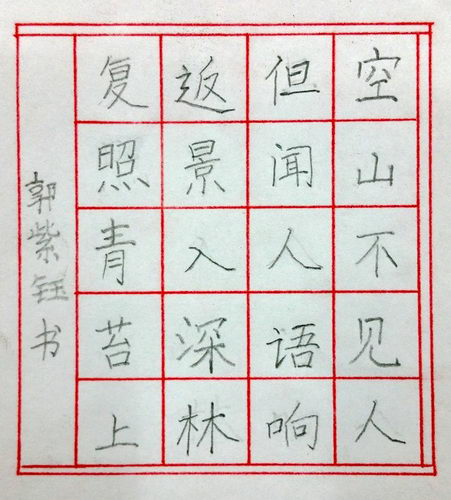 空山不见人
但闻人语响
返景入深林
复照青苔上
郭紫钰书